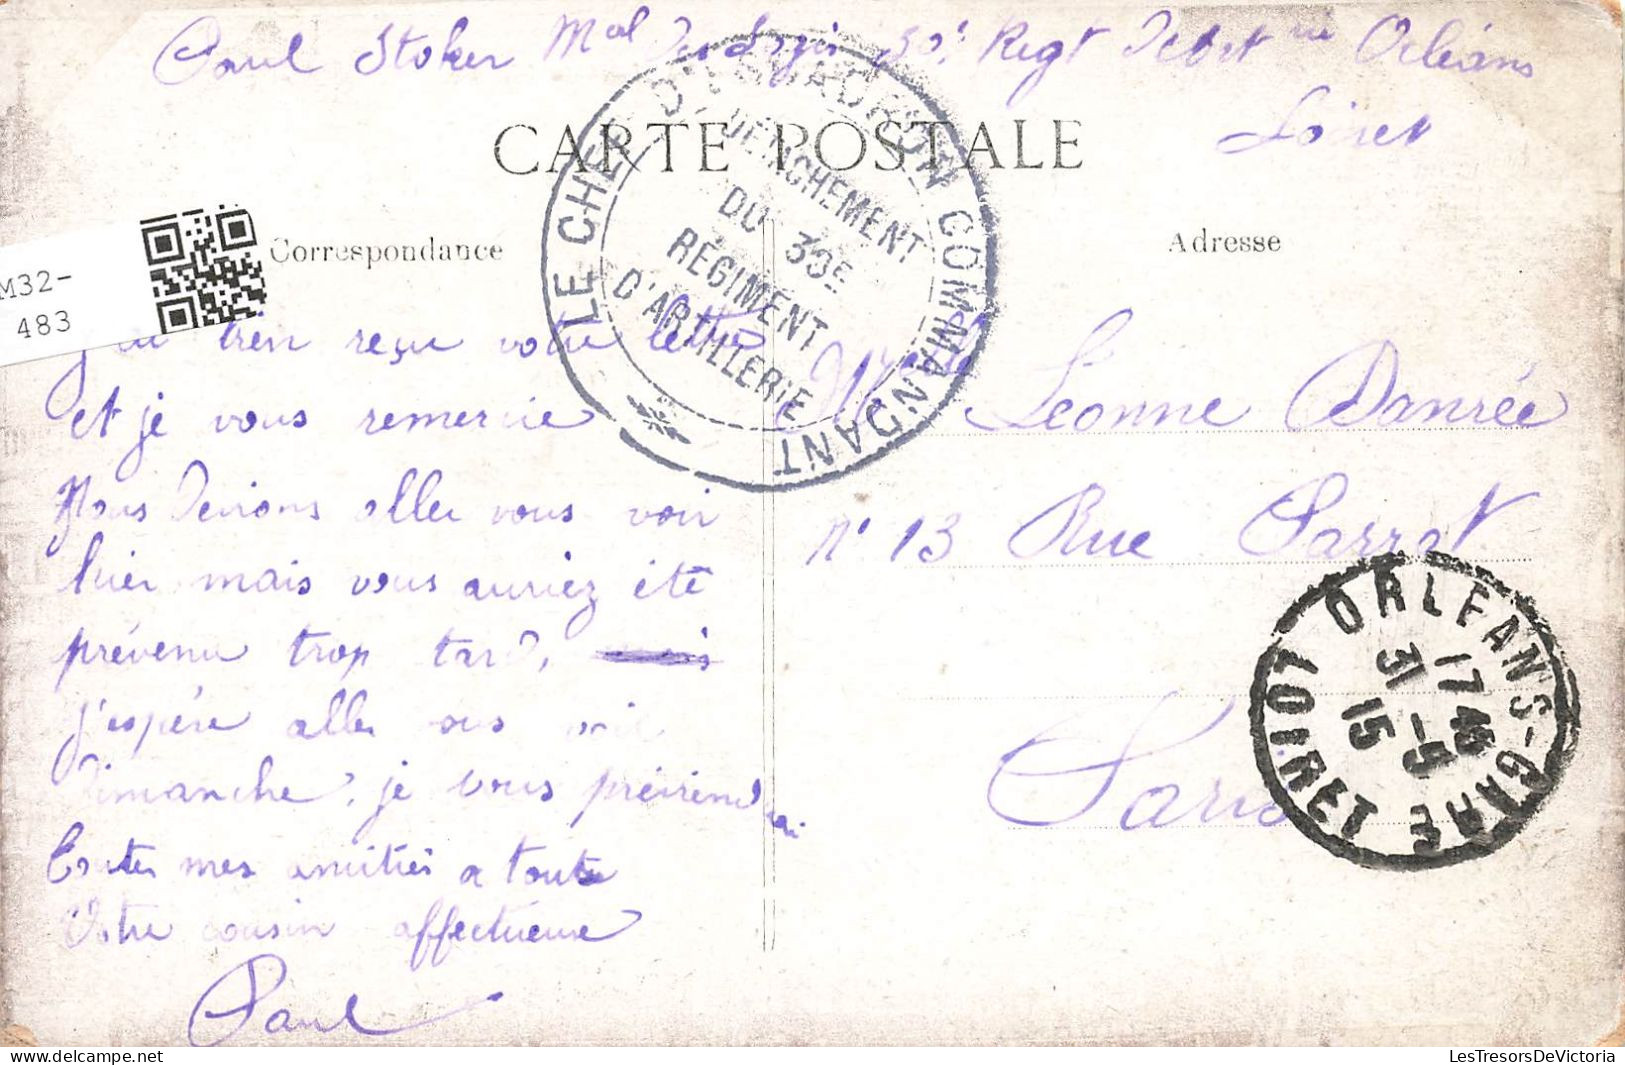 Paul Stoker Mal des Logis 30e Regt d'Art rie Orléans
Loiret
CARTE POSTALE
LE CHEF D'ESCADRON COMMANDANT
DETACHEMENT
DU 30E
RÉGIMENT
D'ARTILLERIE
Correspondance
Adresse
M32-
483
J'ai bien reçu votre lettre
et je vous remercie
Nous devions aller vous voir
hier mais vous auriez été
prévenu trop tard,
j'espère aller vous voir
Dimanche, je vous préviendrai
Toutes mes amitiés a toute
Votre cousin affectueux
Paul
Melle Léonne Danrée
N° 13 Rue Sarrat
Paris
ORLEANS-GARE
LOIRET
17 45
31 -5
15
LesTresorsDeVictoria